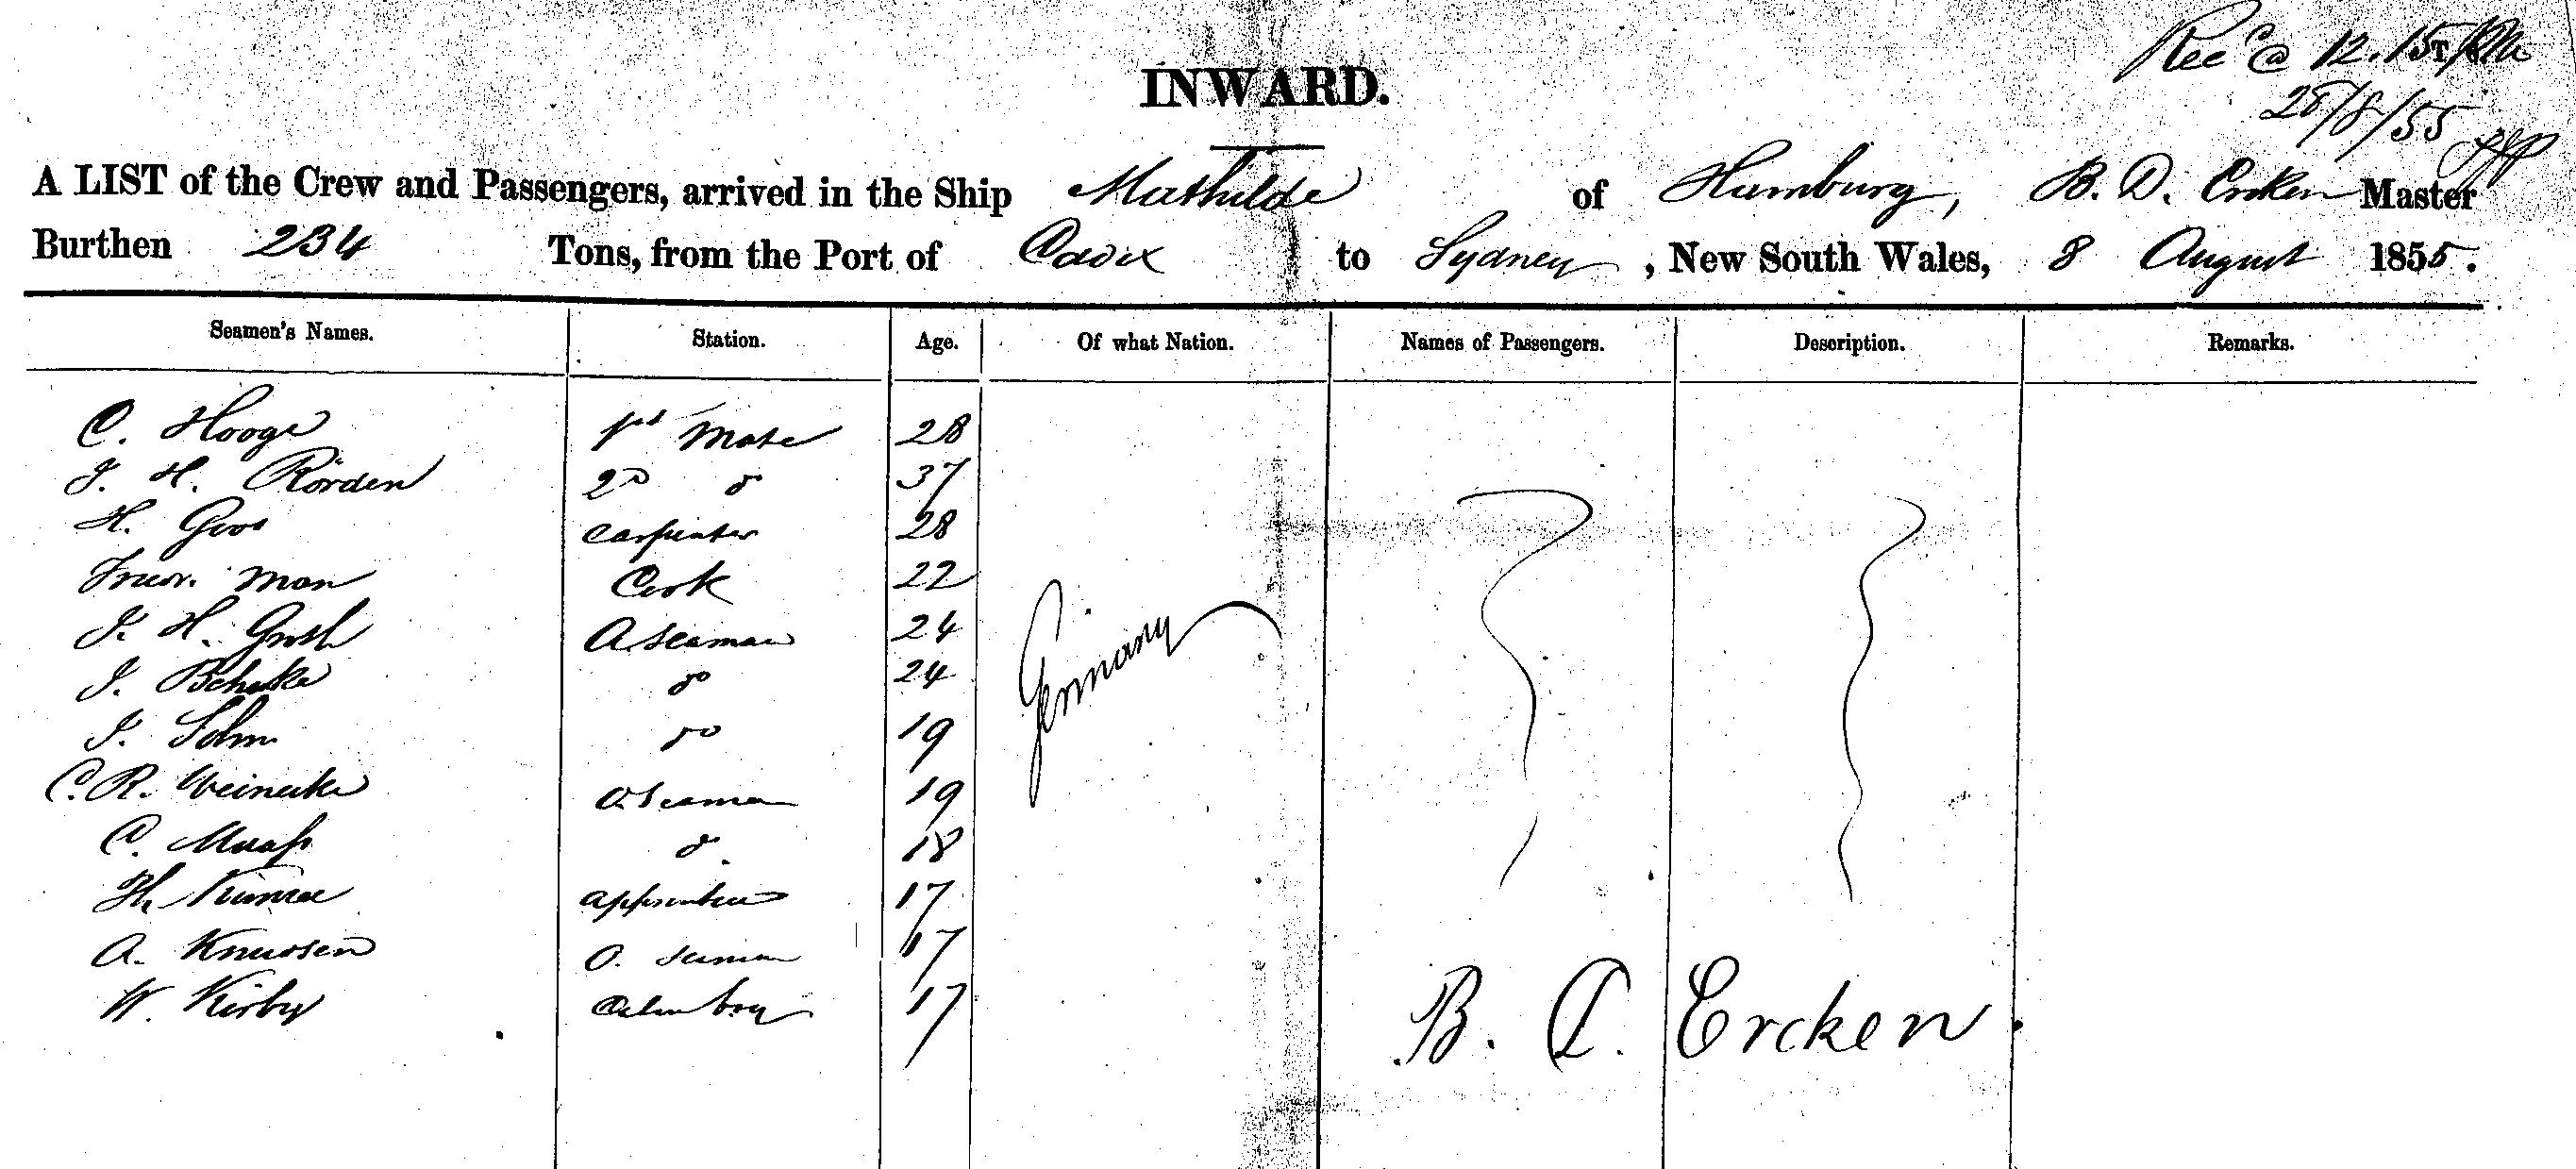 Rec'd @ 12.15
28/8/55
INWARD.
A LIST of the Crew and Passengers, arrived in the Ship Mathilde of Hamburg, B. D. Ercken Master
Burthen 234 Tons, from the Port of Cadix to Sydney, New South Wales, 8 August 1855.
Seamen's Names. Station. Age. Of what Nation. Names of Passengers. Description. Remarks.
C. Hooge 1st Mate 28
J. H. Rörden 2D do 37
H. Goos Carpenter 28
Man Cook 22
J. H. Grosh A Seaman 24
J. Behnke do 24
J. Sohm do 19
Germany
C. R. Weinecke O. Seaman 19
C. Maass do 18
Th. Apprentice 17
A. Knudsen O. Seaman 17
W. Kirby Cabin boy 17
B. D. Ercken.